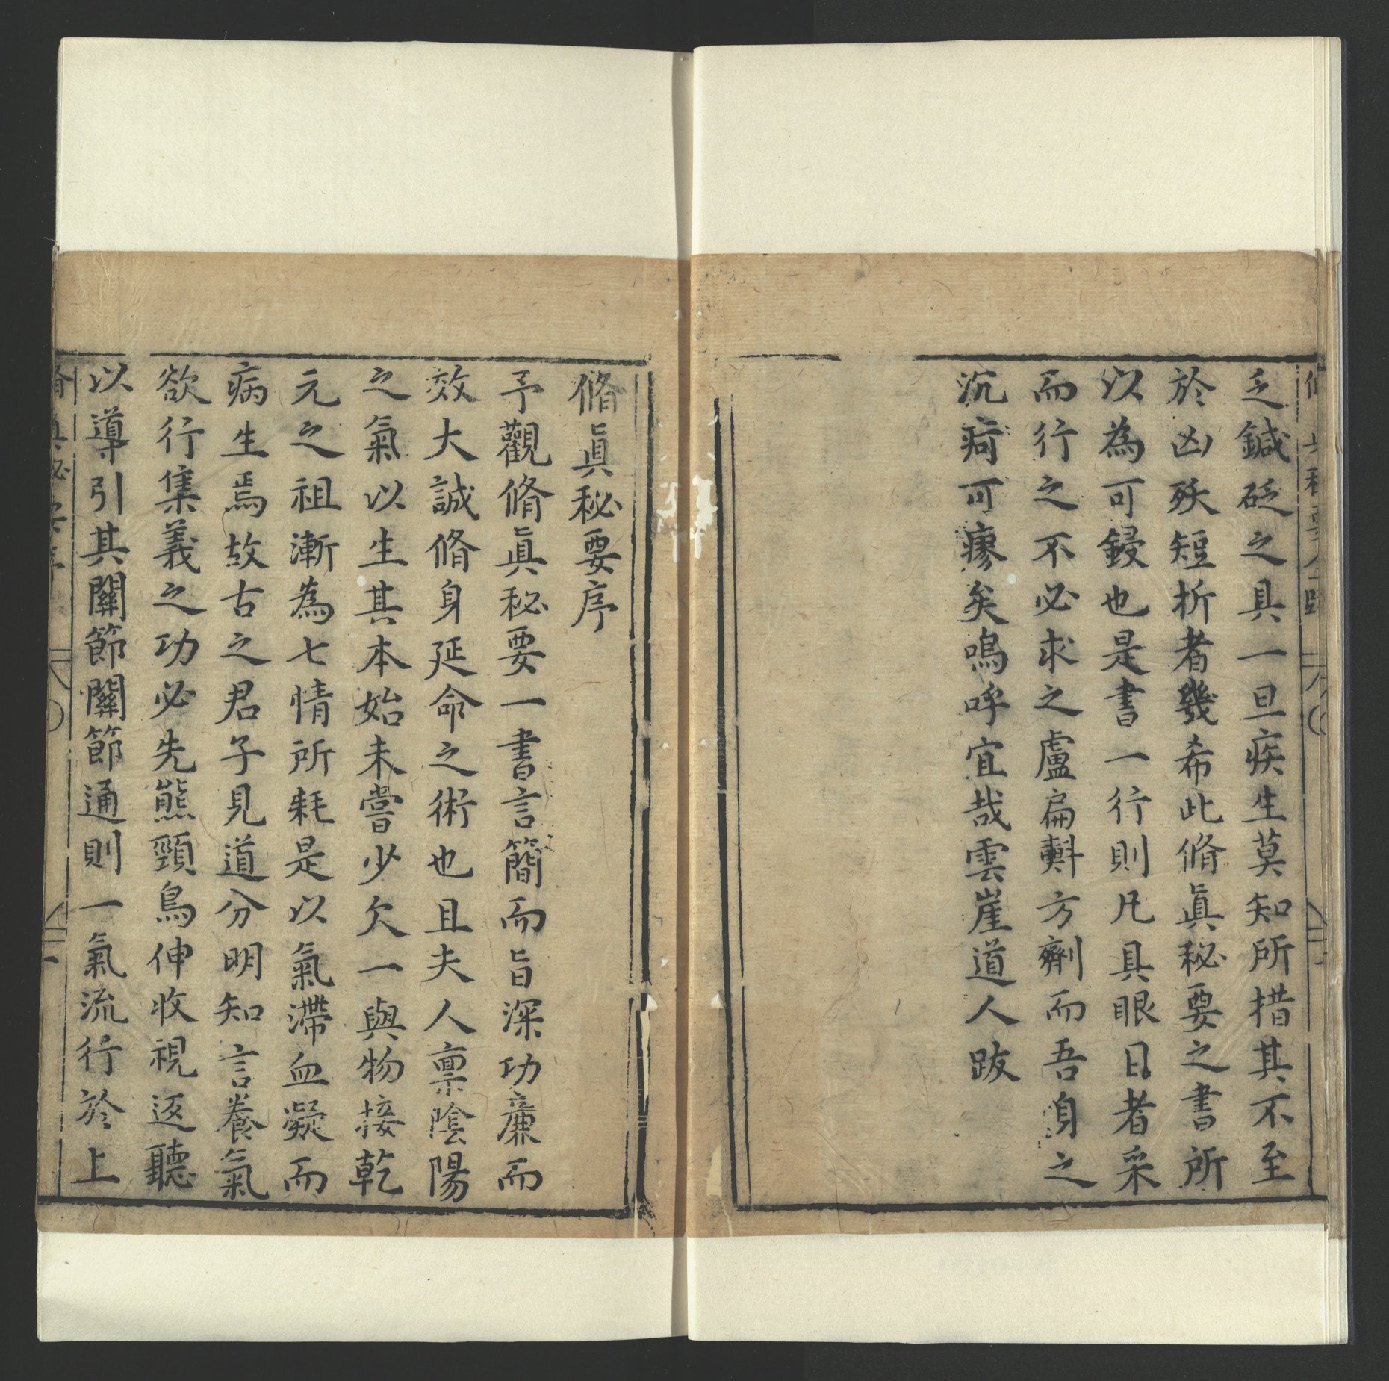 乏鍼砭之具一旦疾生莫知所措其不至
於凶殀短折者幾希此脩眞秘要之書所
以為可鋟也是書一行則凡具眼目者采
而行之不必求之盧扁㪺方劑而吾身之
沉疴可瘳矣嗚呼宜哉雲崖道人跋
脩眞秘要序
予觀脩眞秘要一書言簡而旨深功廉而
效大誠脩身延命之術也且夫人禀陰陽
之氣以生其本始未嘗少欠一與物接乾
元之祖漸為七情所耗是以氣滯血凝而
病生焉故古之君子見道分明知言養氣
欲行集義之功必先熊頸鳥伸收視返聽
以導引其關節關節通則一氣流行於上
脩眞秘要序